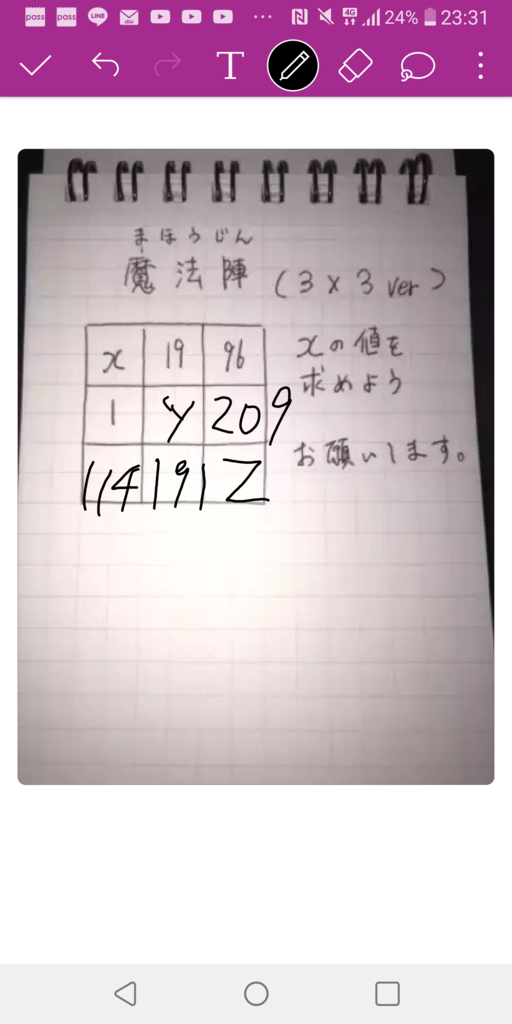 pass pass LINE 4G 24% 23:31
T
まほうじん
魔法陣 (3×3 ver)
x 19 96 xの値を
求めよう
1 Y 209
114 191 Z お願いします。